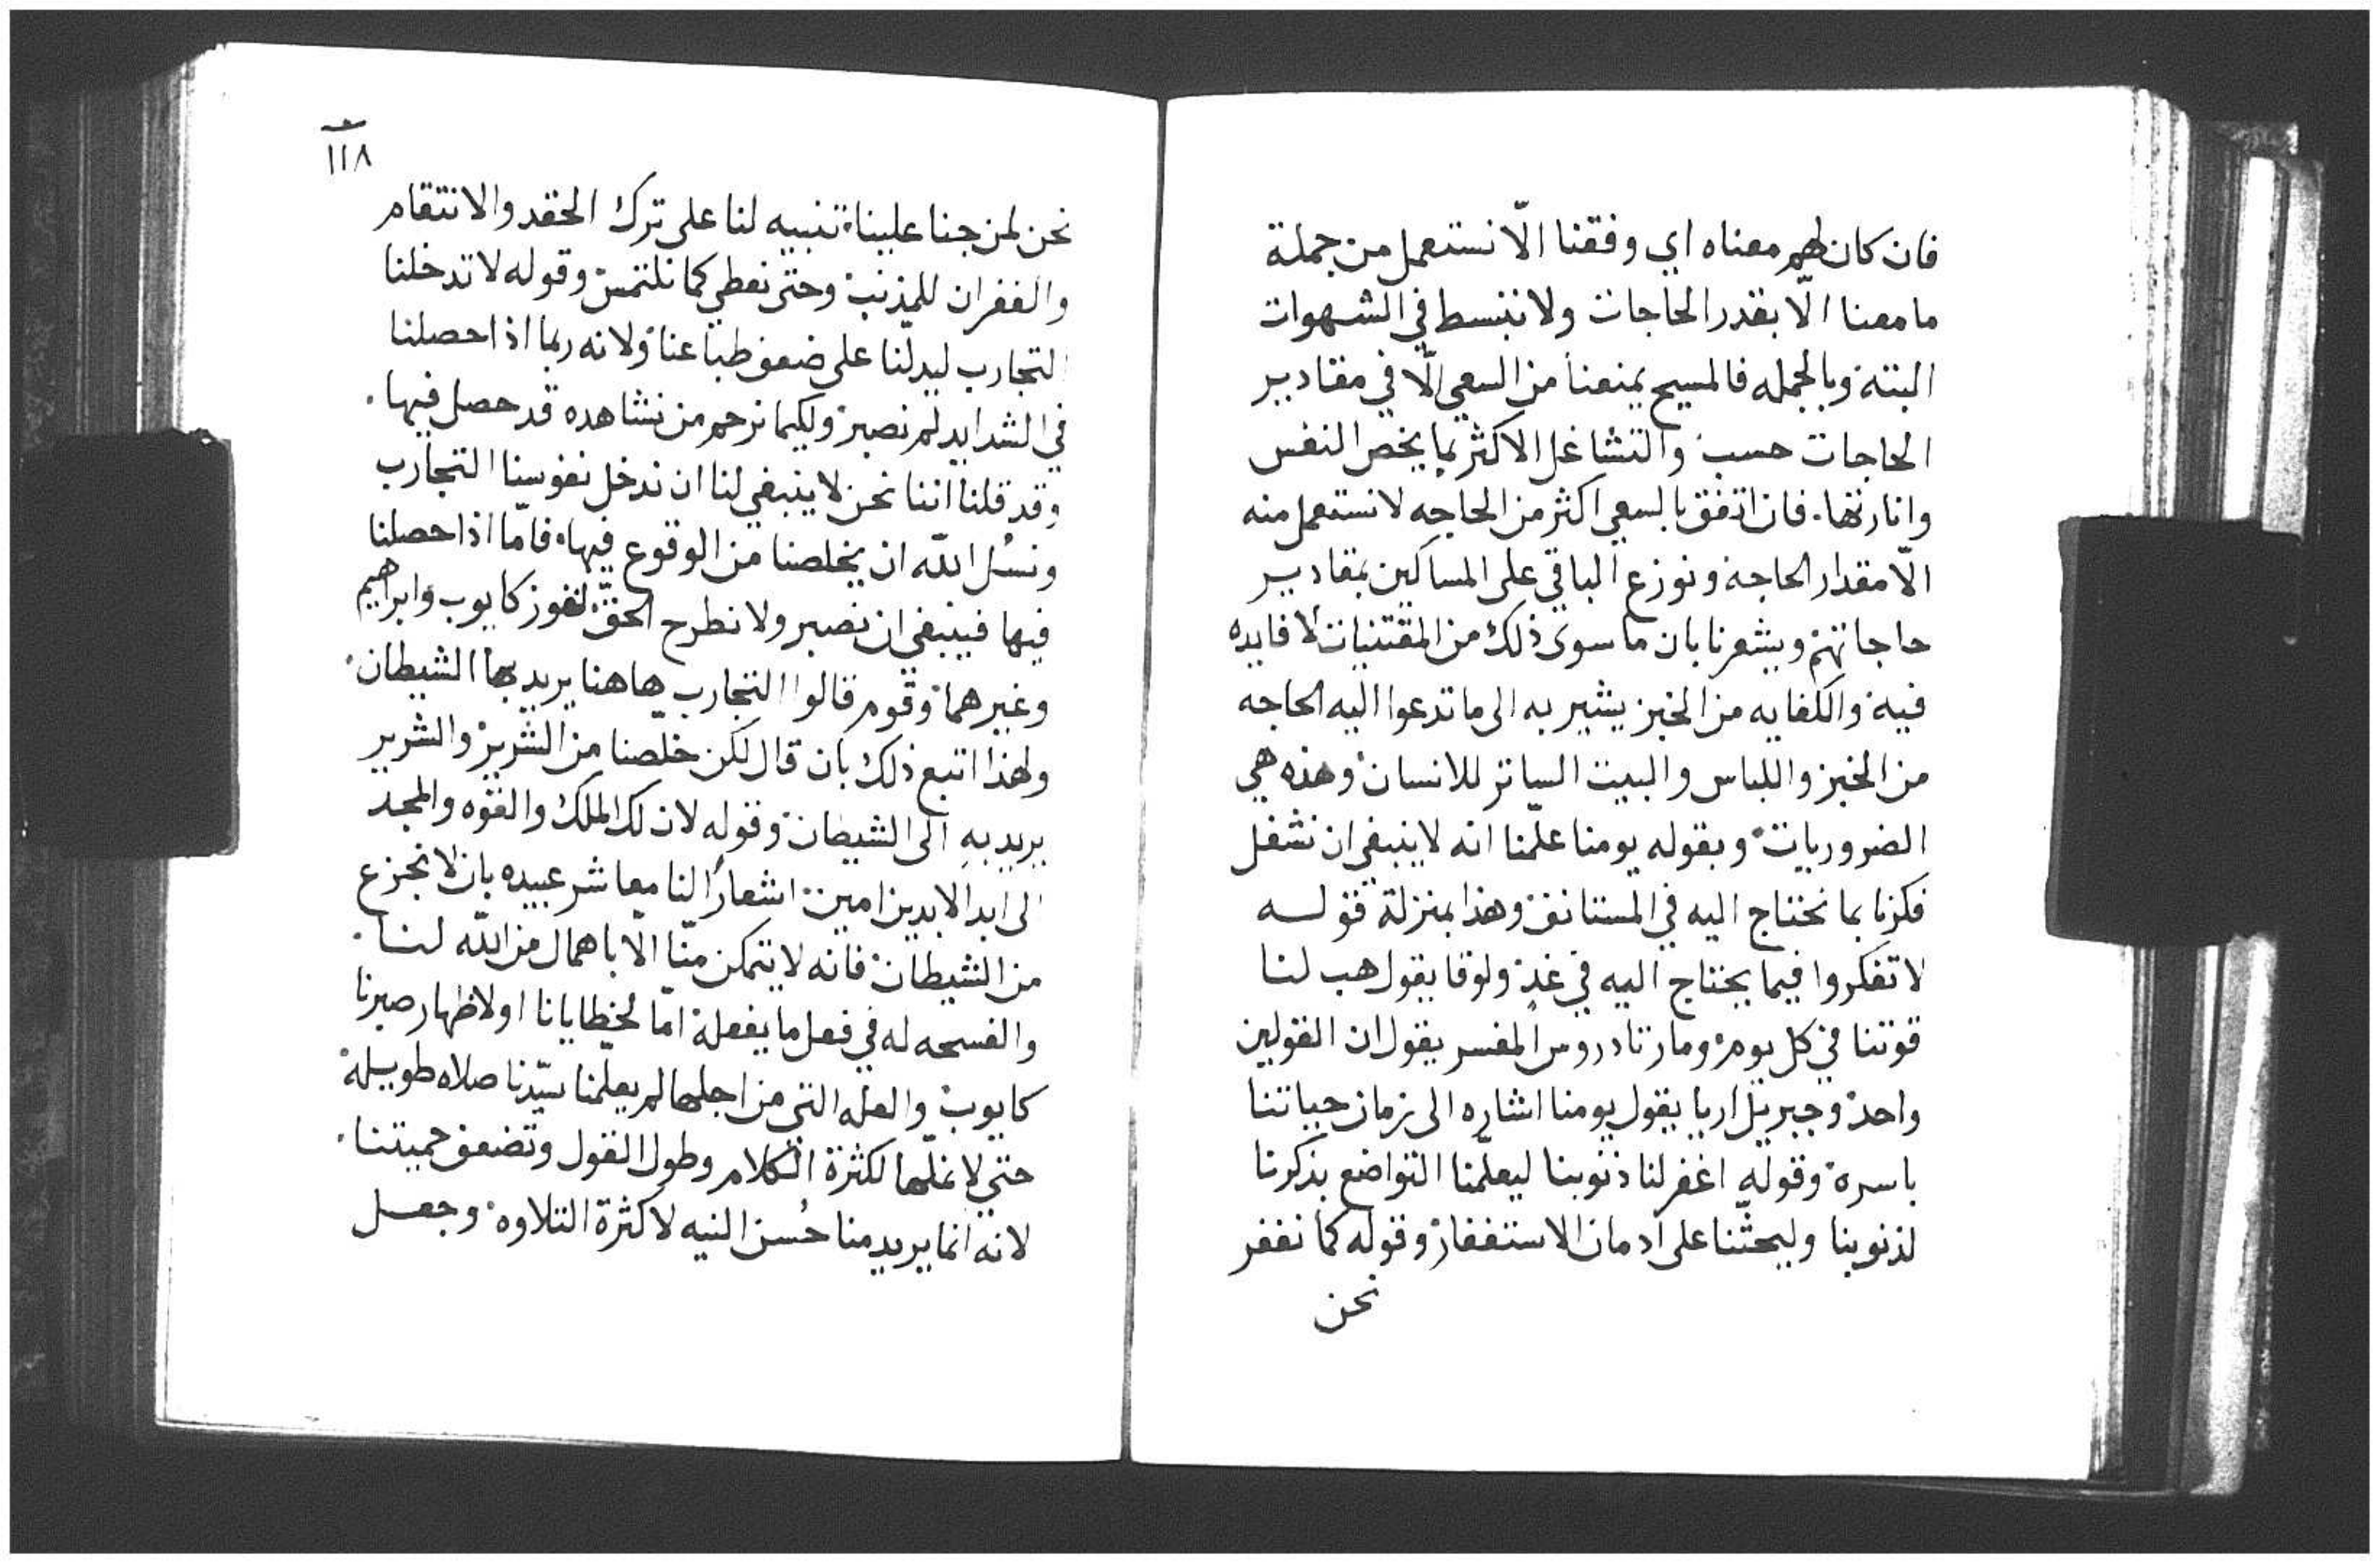 فان كان لهم معناه اي وفقنا الّا نستعمل من جملة
ما معنا الّا بقدر الحاجات ولا ننبسط في الشهوات
البتة وبالجمله فالمسيح يمنعنا من السعي الّا في مقادير
الحاجات حسب والتشاغل الاكثر بما يخص النفس
وانارتها. فان اتفق بالسعي اكثر من الحاجه لا نستعمل منه
الّا مقدار الحاجة ونوزع الباقي على المساكين بمقادير
حاجاتهم ويشعرنا بان ما سوى ذلك من المقتنيات لا فايده
فيه والكفايه من الخبز يشير به الى ما تدعوا اليه الحاجه
من الخبز واللباس والبيت الساتر للانسان وهذه هي
الضروريات وبقوله يومنا علّمنا انه لا ينبغي ان نشغل
فكرنا بما نحتاج اليه في المستانف وهذا بمنزلة قوله
لا تفكروا فيما يحتاج اليه في غد ولوقا يقول هب لنا
قوتنا في كل يوم ومار تادروس المفسر يقول ان القولين
واحد وجبريل اريا يقول يومنا اشاره الى زمان حياتنا
باسره وقوله اغفر لنا ذنوبنا ليعلّمنا التواضع بذكرنا
لذنوبنا وليحثّنا على ادمان الاستغفار وقوله كما نغفر
نحن
١١٨
نحن لمن جنا علينا تنبيه لنا على ترك الحقد والانتقام
والغفران للمذنب وحتى نعطي كما نلتمس وقوله لا تدخلنا
التجارب ليدلّنا على ضعف طباعنا ولانه ربما اذا حصلنا
في الشدايد لم نصبر ولكيما نرحم من نشاهده قد حصل فيها.
وقد قلنا اننا نحن لا ينبغي لنا ان ندخل نفوسنا التجارب
ونسُل الله ان يخلصنا من الوقوع فيها فامّا اذا حصلنا
فيها فينبغي ان نصبر ولا نطرح الحقّ لنفوز كايوب وابراهيم
وغيرهما وقوم قالوا التجارب هاهنا يريد بها الشيطان
ولهذا اتبع ذلك بان قال لكن خلصنا من الشرير والشرير
يريد به الى الشيطان وقوله لان لك الملك والقوه والمجد
الى ابد الابدين امين اشعارًا لنا معاشر عبيده بان لا نجزع
من الشيطان فانه لا يتمكن منّا الّا باهمال من الله لنا.
والفسحه له في فعل ما يفعلة امّا لخطايانا او لاظهار صبرنا
كايوب والعله التي من اجلها لم يعلّمنا سيّدنا صلاه طويلة
حتي لا نملّها لكثرة الكلام وطول القول وتضعف حميتنا.
لانه انما يريد منا حُسن النيه لا كثرة التلاوه وجعل